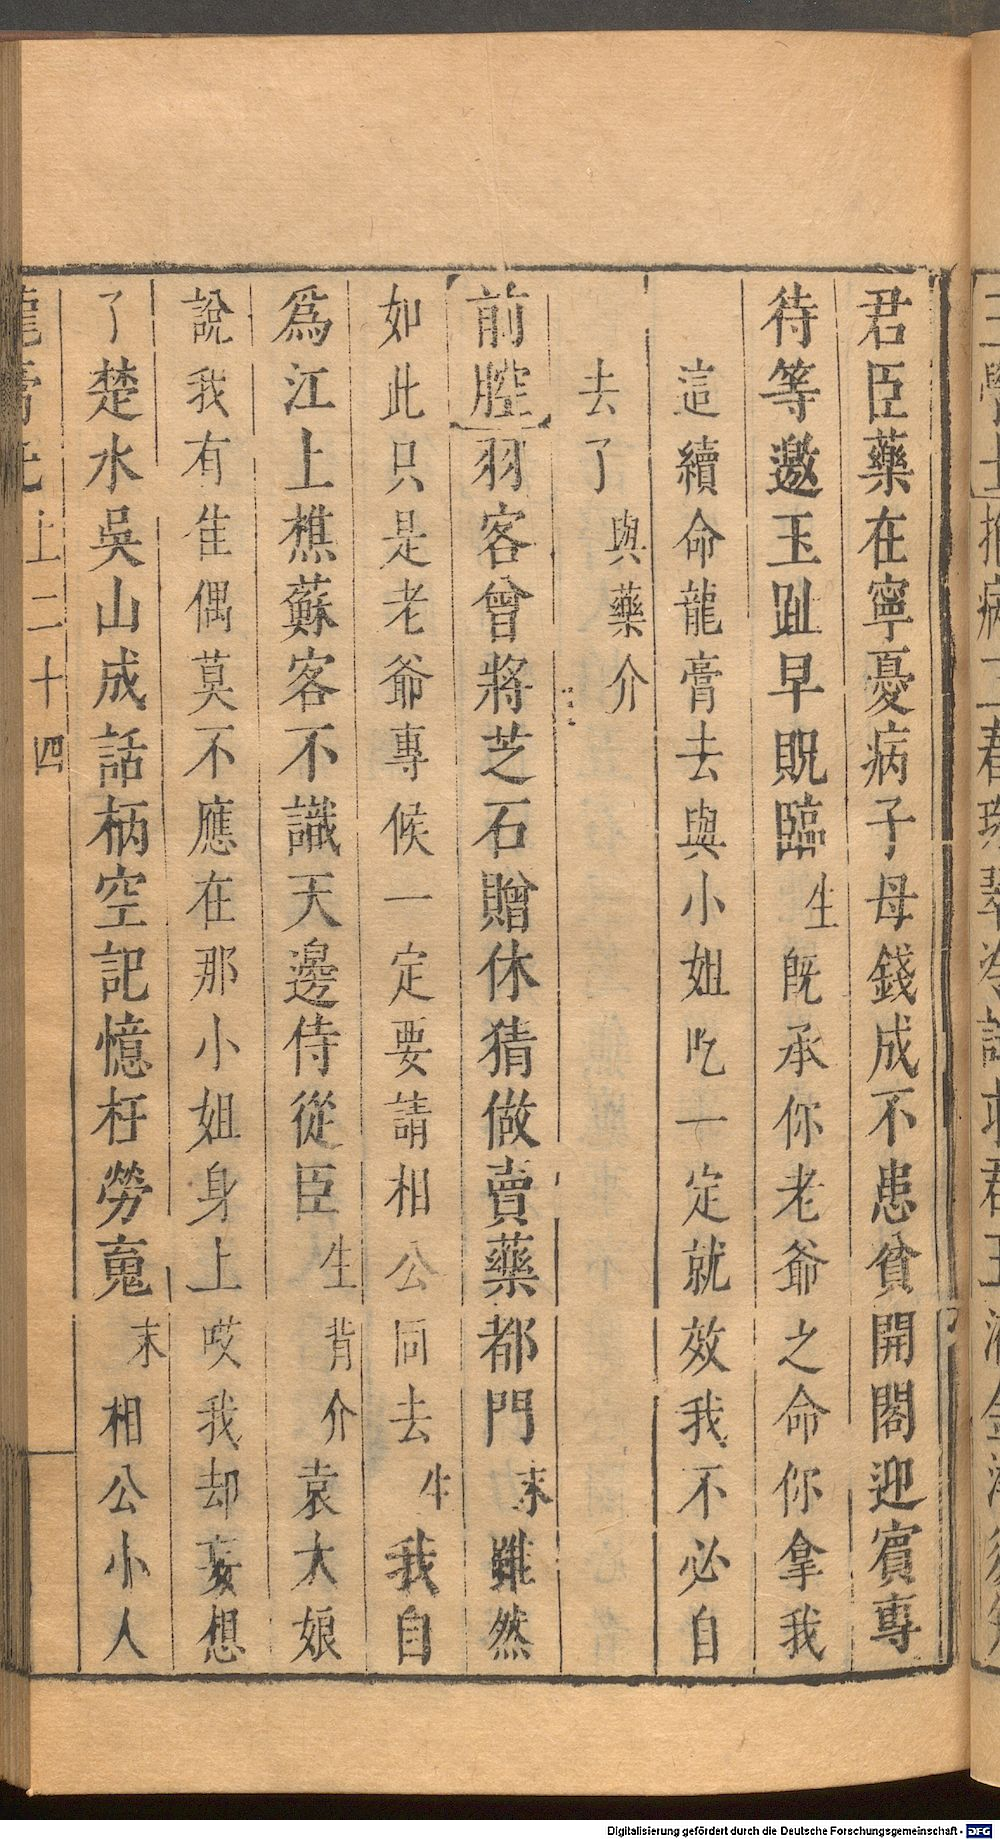 君臣藥在寧憂病子母錢成不患貧開閣迎賓專
待等邀玉趾早貺臨生旣承你老爺之命你拿我
這續命龍膏去與小姐吃一定就效我不必自
去了與藥介
前腔羽客曾將芝石贈休猜做賣藥都門末雖然
如此只是老爺專候一定要請相公同去生我自
爲江上樵蘇客不識天邊侍從臣生背介袁大娘
說我有隹偶莫不應在那小姐身上哎我却妄想
了楚水吳山成話柄空記憶枉勞䰟末相公小人
龍膏記上二十四
Digitalisierung gefördert durch die Deutsche Forschungsgemeinschaft - DFG